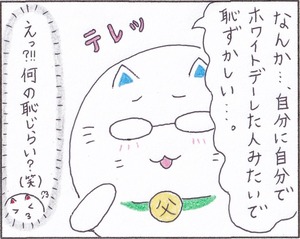 なんか…、自分に自分で
ホワイトデーした人みたいで
恥ずかしい…。
テレッ
えっ?!! 何の恥じらい?
(笑)
父